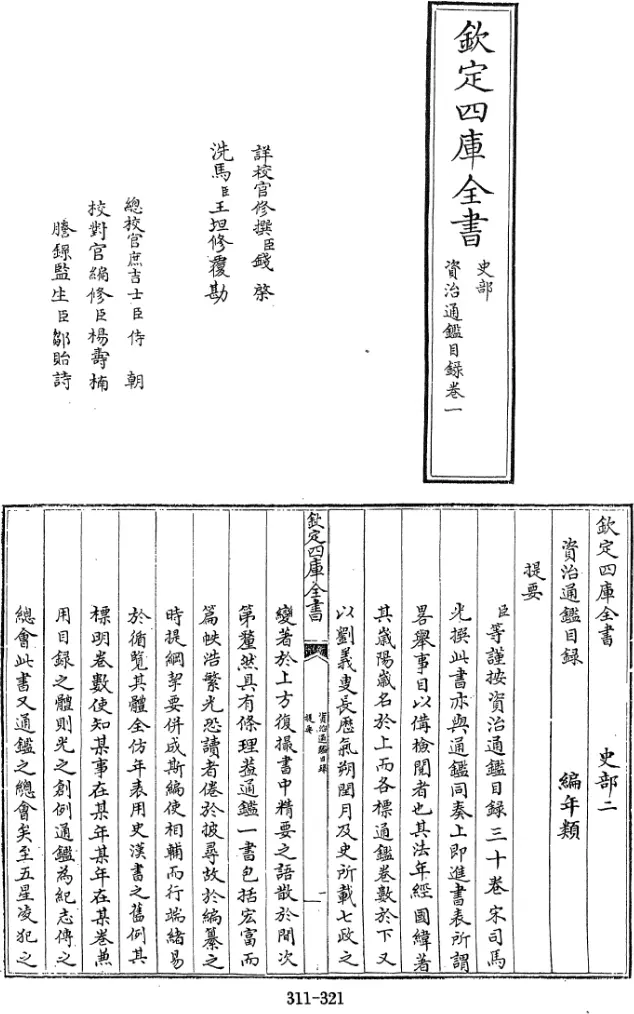 欽定四庫全書
史部
資治通鑑目録卷一
詳校官修撰臣錢棨
洗馬臣王坦修覆勘
總校官庶吉士臣侍朝
校對官編修臣楊壽楠
謄録監生臣鄒貽詩
欽定四庫全書 史部二
資治通鑑目録 編年類
提要
臣等謹按資治通鑑目録三十卷宋司馬
光撰此書亦與通鑑同奏上即進書表所謂
畧舉事目以備檢閱者也其法年經國緯著
其歲陽歲名於上而各標通鑑卷數於下又
以劉羲叟長歷氣朔閏月及史所載七政之
欽定四庫全書
資治通鑑目録
提要
一
變著於上方復撮書中精要之語散於閒次
第釐然具有條理葢通鑑一書包括宏富而
篇帙浩繁光恐讀者倦於披尋故於編纂之
時提綱挈要併成斯編使相輔而行端緒易
於循覽其體全仿年表用史漢書之舊例其
標明卷數使知某事在某年某年在某卷兼
用目録之體則光之創例通鑑為紀志傳之
總會此書又通鑑之總會矣至五星凌犯之
311-321